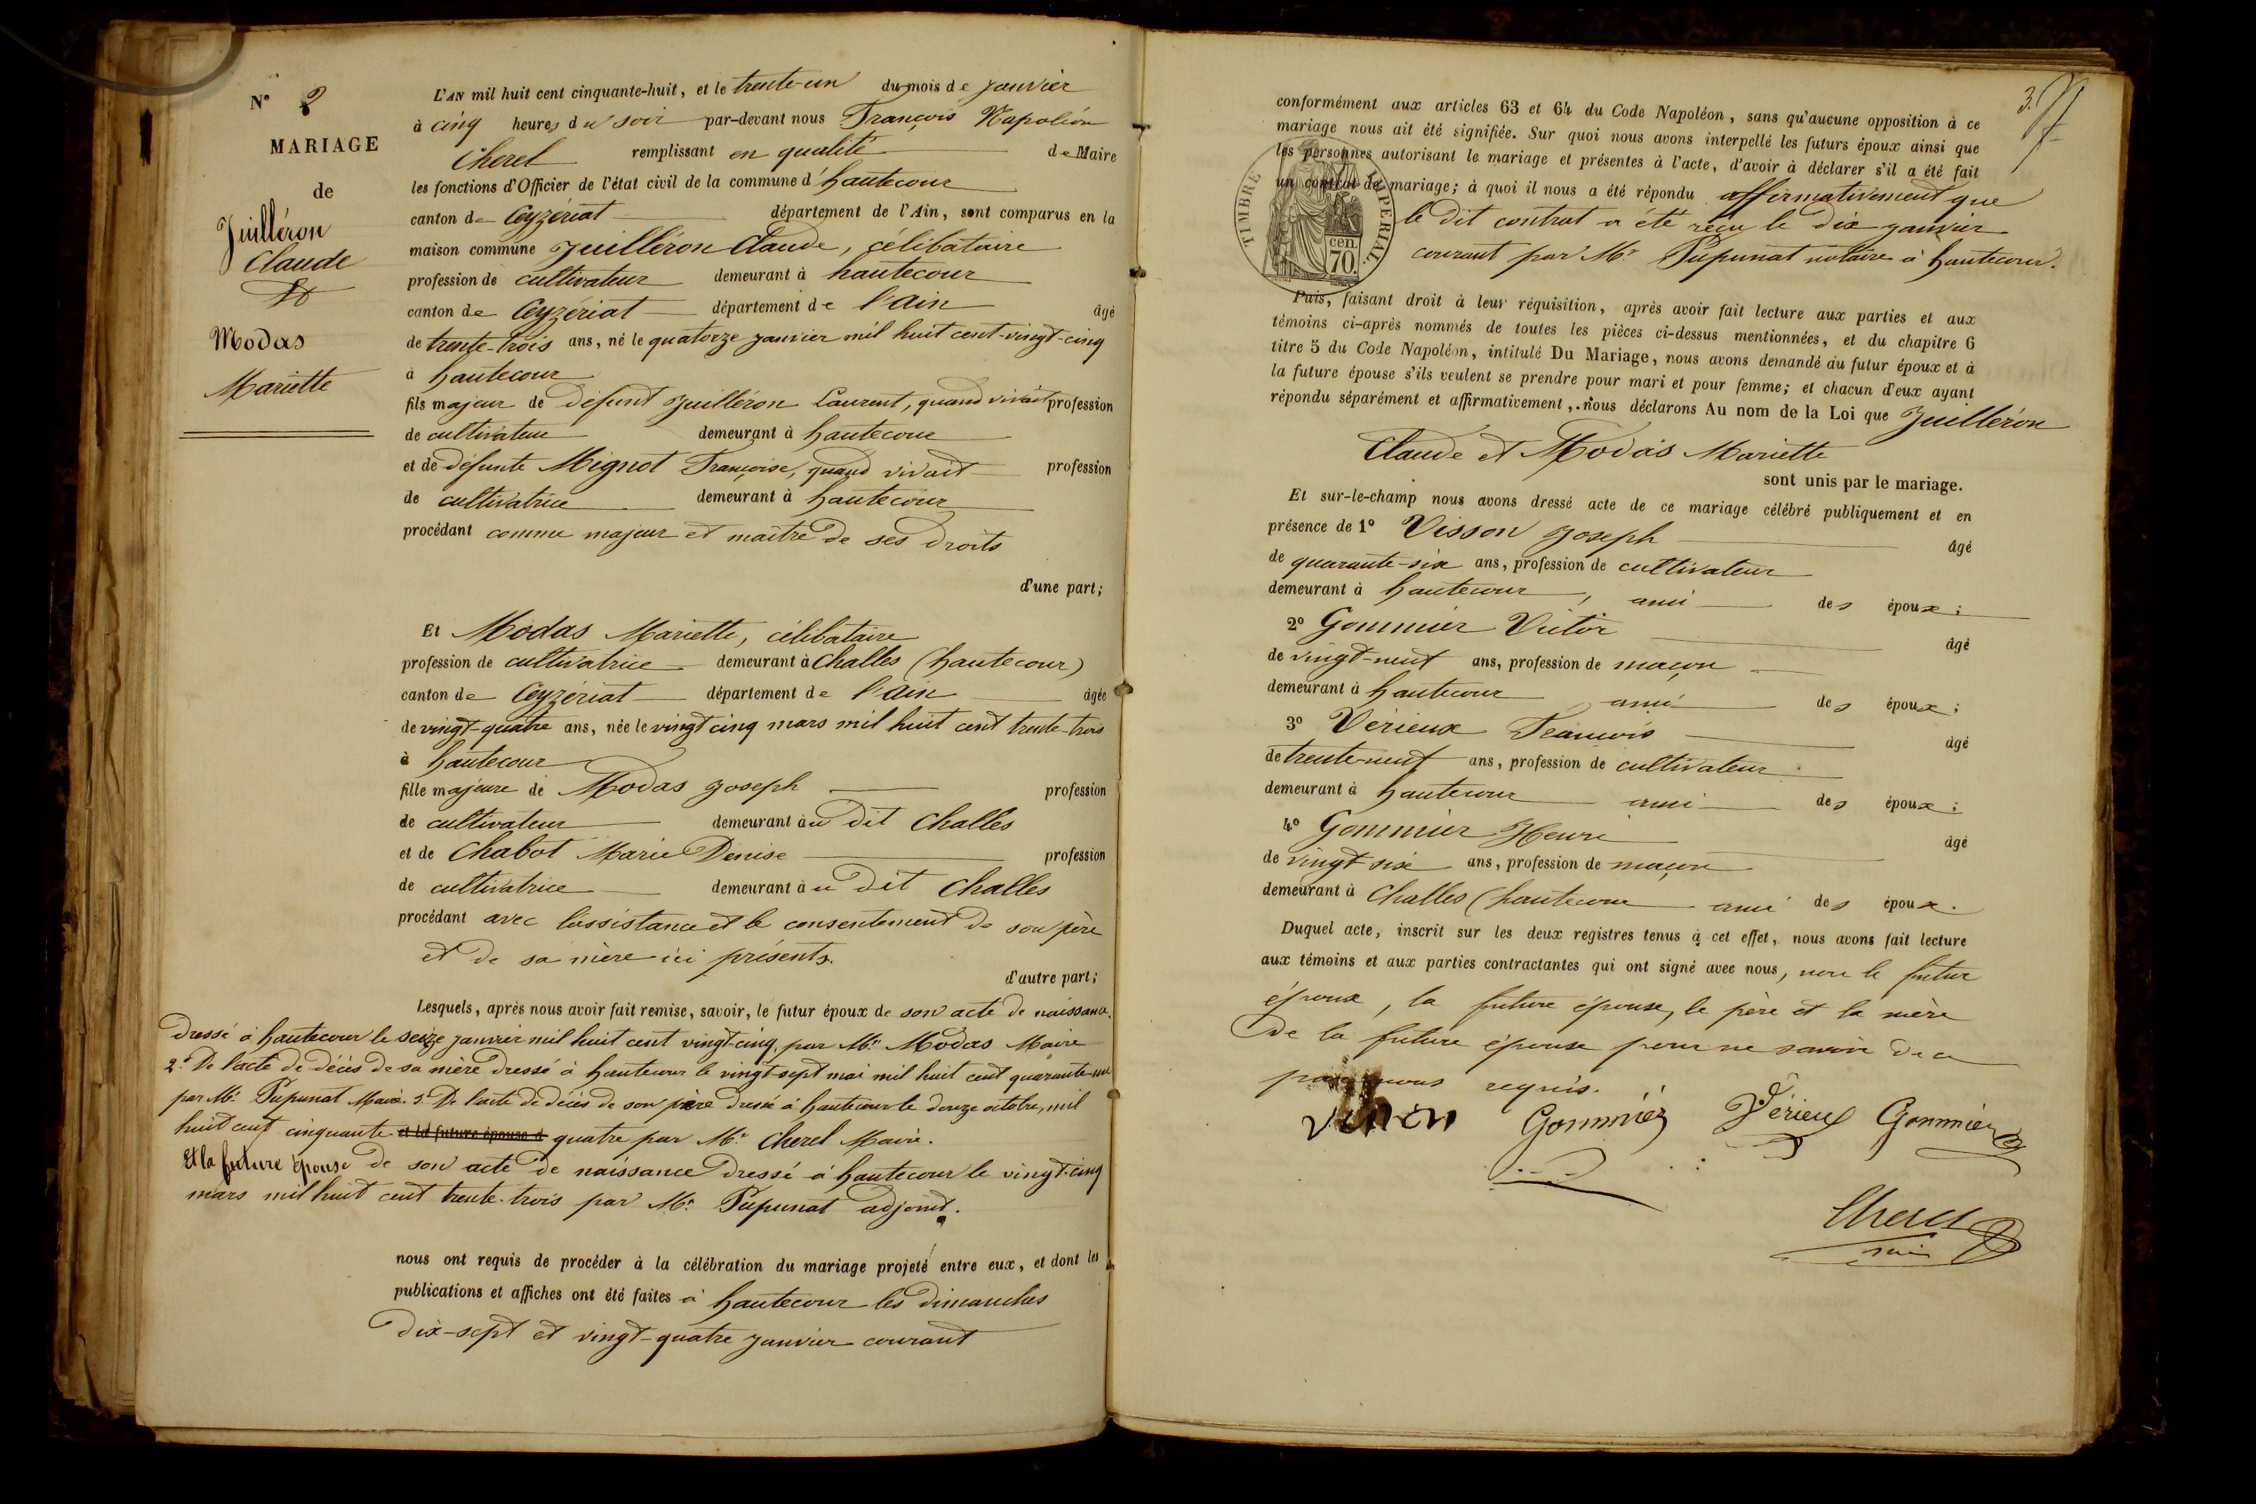 N° 2
MARIAGE
de
Juilléron
Claude
et
Modas
Mariette
L'AN mil huit cent cinquante-huit, et le trente-un du mois de janvier
à cinq heures du soir par-devant nous François Napoléon
Cherel remplissant en qualité de Maire
les fonctions d'Officier de l'état civil de la commune d'hautecour
canton de Ceyzériat département de l'Ain, sont comparus en la
maison commune Juilléron Claude, célibataire
profession de cultivateur demeurant à hautecour
canton de Ceyzériat département de l'ain âgé
de trente-trois ans, né le quatorze janvier mil huit cent-vingt-cinq
à hautecour
fils majeur de défunt Juilléron Laurent, quand vivait profession
de cultivateur demeurant à hautecour
et de défunte Mignot Françoise, quand vivait profession
de cultivatrice demeurant à hautecour
procédant comme majeur et maître de ses droits
d'une part;
Et Modas Mariette, célibataire
profession de cultivatrice demeurant à Challes (hautecour)
canton de Ceyzériat département de l'ain âgée
de vingt-quatre ans, née le vingt cinq mars mil huit cent trente-trois
à hautecour
fille majeure de Modas Joseph profession
de cultivateur demeurant au dit Challes
et de Chabot Marie Denise profession
de cultivatrice demeurant au dit Challes
procédant avec l'assistance et le consentement de son père
et de sa mère ici présents.
d'autre part;
Lesquels, après nous avoir fait remise, savoir, le futur époux de son acte de naissance
dressé à hautecour le seize janvier mil huit cent vingt-cinq, par Mr. Modas Maire
2° De l'acte de décès de sa mère dressé à hautecour le vingt-sept mai mil huit cent quarante-un
par Mr. Pupunat Maire. 3° De l'acte de décès de son père dressé à hautecour le douze octobre, mil
huit cent cinquante et la future épouse d quatre par Mr. Cherel Maire.
Et la future épouse de son acte de naissance dressé à hautecour le vingt-cinq
mars mil huit cent trente-trois par Mr. Pupunat adjoint.
nous ont requis de procéder à la célébration du mariage projeté entre eux, et dont les
publications et affiches ont été faites à hautecour les dimanches
dix-sept et vingt-quatre janvier courant
3.
conformément aux articles 63 et 64 du Code Napoléon, sans qu'aucune opposition à ce
mariage nous ait été signifiée. Sur quoi nous avons interpellé les futurs époux ainsi que
les personnes autorisant le mariage et présentes à l'acte, d'avoir à déclarer s'il a été fait
un contrat de mariage; à quoi il nous a été répondu affirmativement que
le dit contrat a été reçu le dix janvier
courant par Mr. Pupunat notaire à hautecour.
TIMBRE IMPERIAL
cen.
70.
Puis, faisant droit à leur réquisition, après avoir fait lecture aux parties et aux
témoins ci-après nommés de toutes les pièces ci-dessus mentionnées, et du chapitre 6
titre 5 du Code Napoléon, intitulé Du Mariage, nous avons demandé au futur époux et à
la future épouse s'ils veulent se prendre pour mari et pour femme; et chacun d'eux ayant
répondu séparément et affirmativement, nous déclarons Au nom de la Loi que Juilléron
Claude et Modas Mariette
sont unis par le mariage.
Et sur-le-champ nous avons dressé acte de ce mariage célébré publiquement et en
présence de 1° Visson Joseph âgé
de quarante-six ans, profession de cultivateur
demeurant à hautecour, ami des époux;
2° Gommier Victor âgé
de vingt-neuf ans, profession de maçon
demeurant à hautecour ami des époux;
3° Vérieux François âgé
de trente-neuf ans, profession de cultivateur
demeurant à hautecour ami des époux;
4° Gommier Henri âgé
de vingt-six ans, profession de maçon
demeurant à Challes (hautecour ami des époux.
Duquel acte, inscrit sur les deux registres tenus à cet effet, nous avons fait lecture
aux témoins et aux parties contractantes qui ont signé avec nous, non le futur
époux, la future épouse, le père et la mère
de la future épouse pour ne savoir de ce
par nous requis.
Gommier Vérieux Gommier
Cherel